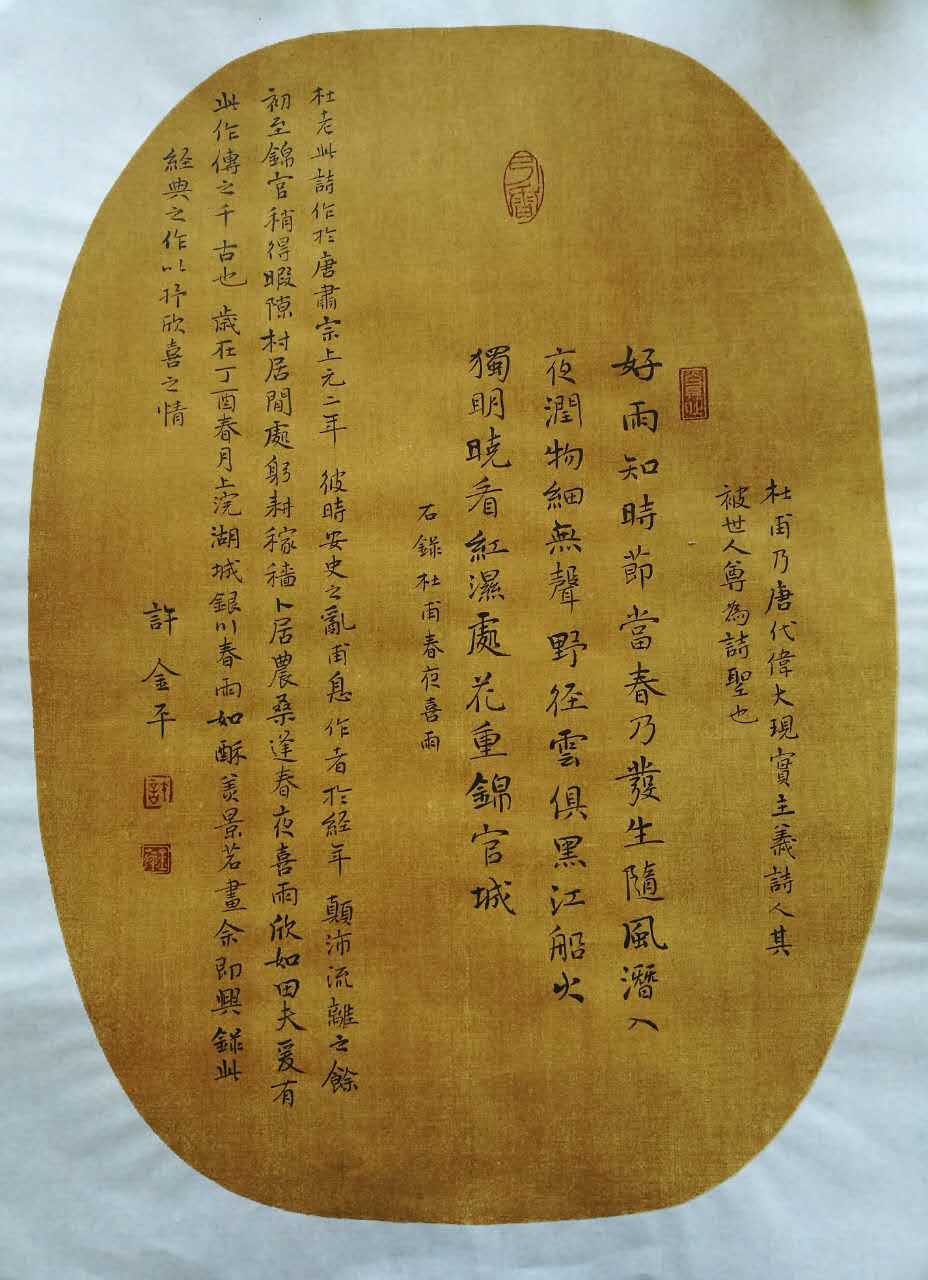 杜甫乃唐代偉大現實主義詩人其
被世人尊為詩聖也
好雨知時節當春乃發生隨風潛入
夜潤物細無聲野径雲俱黑江船火
獨明曉看紅濕處花重錦官城
石錄杜甫春夜喜雨
杜老此詩作於唐肅宗上元二年彼時安史之亂甫息作者於経年顛沛流離之餘
初至錦官稍得暇隙村居閒處躬耕稼穡卜居農桑逢春夜喜雨欣如田夫爰有
此作傳之千古也歲在丁酉春月上浣湖城銀川春雨如酥美景若畫余即興錄此
経典之作以抒欣喜之情
許金平